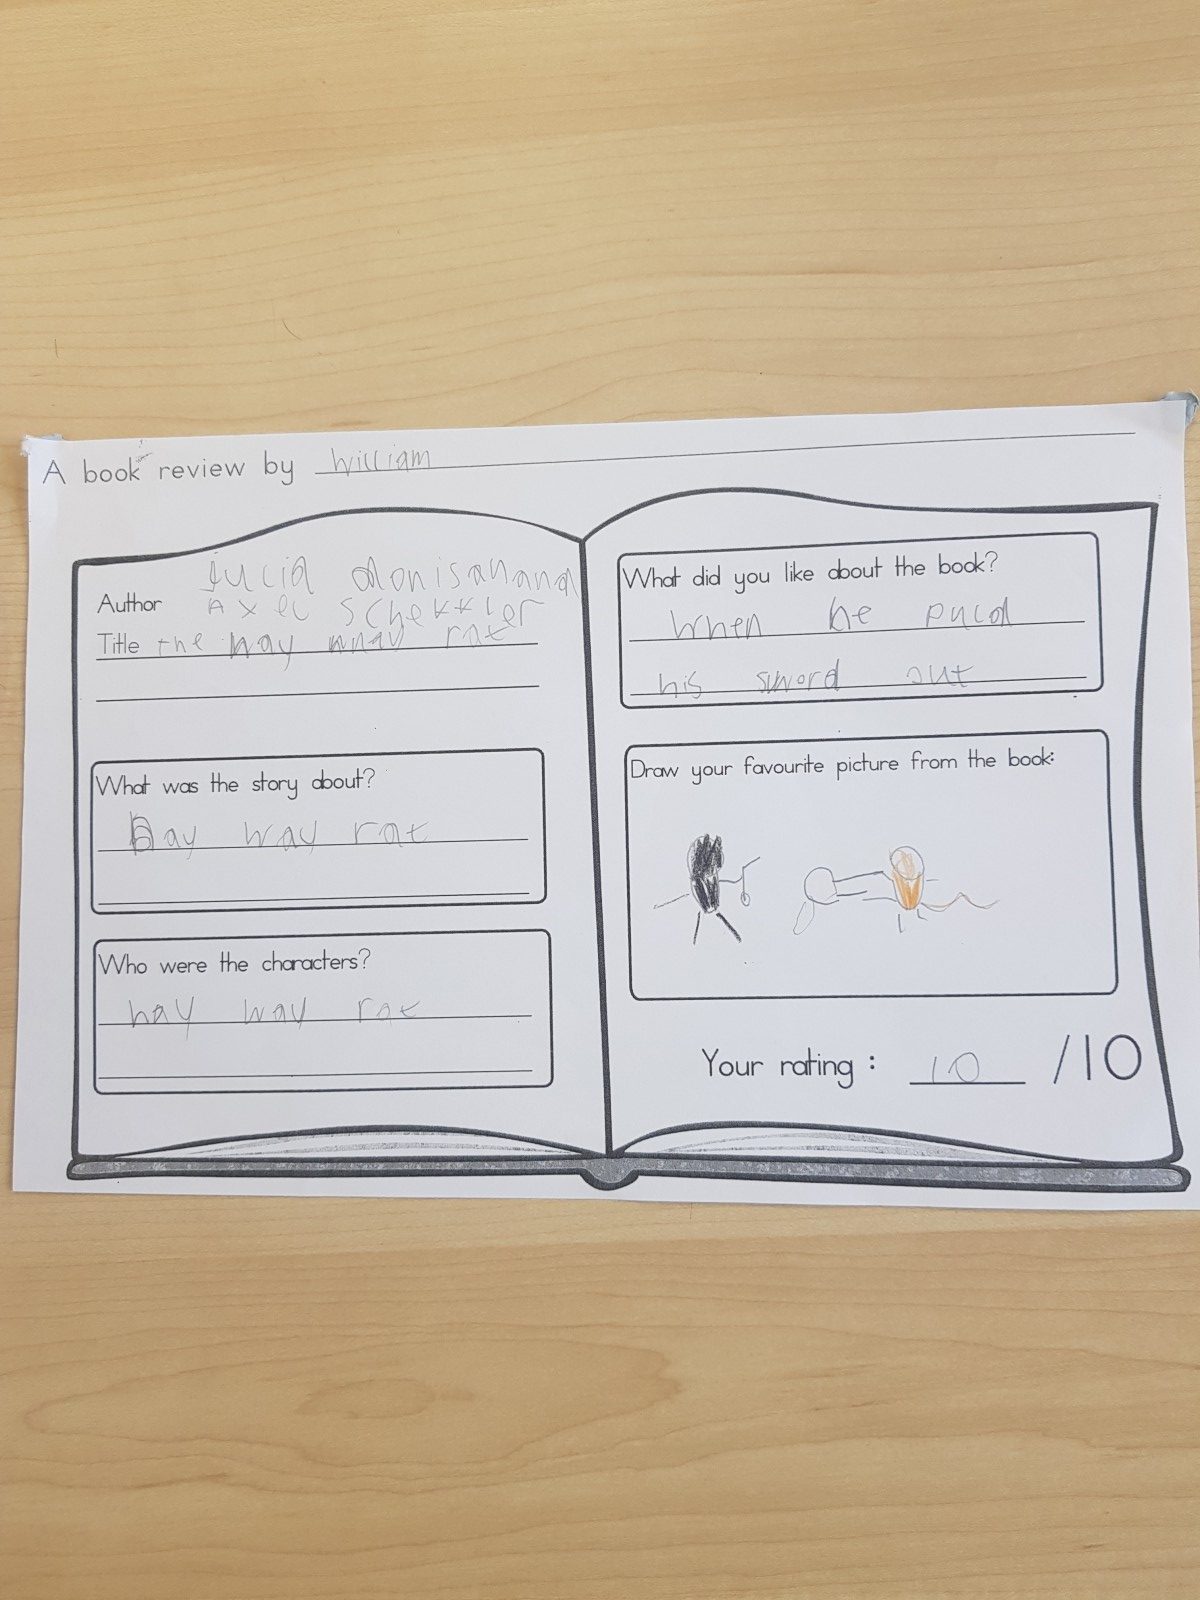 A book review by William
Author Julia donisanand
Axel Schekkler
Title the hay wnay rat
What was the story about?
hay way rat
Who were the characters?
hay way rat
What did you like about the book?
When he puld
his sword out
Draw your favourite picture from the book:
Your rating : 10 /10